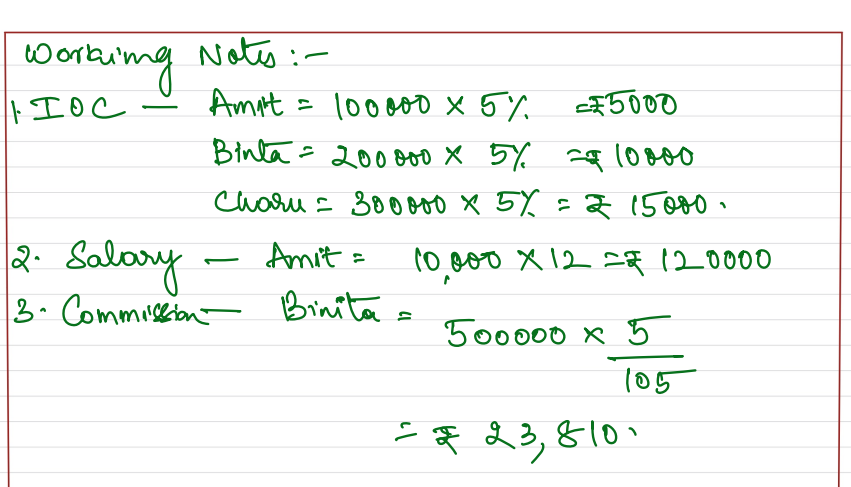 Working Notes :-
1. IOC — Amit = 100000 × 5% = ₹5000
Binta = 200000 × 5% = ₹ 10000
Charu = 300000 × 5% = ₹ 15000.
2. Salary — Amit = 10,000 × 12 = ₹ 120000
3. Commission — Binita =
500000 × 5
105
= ₹ 23,810.